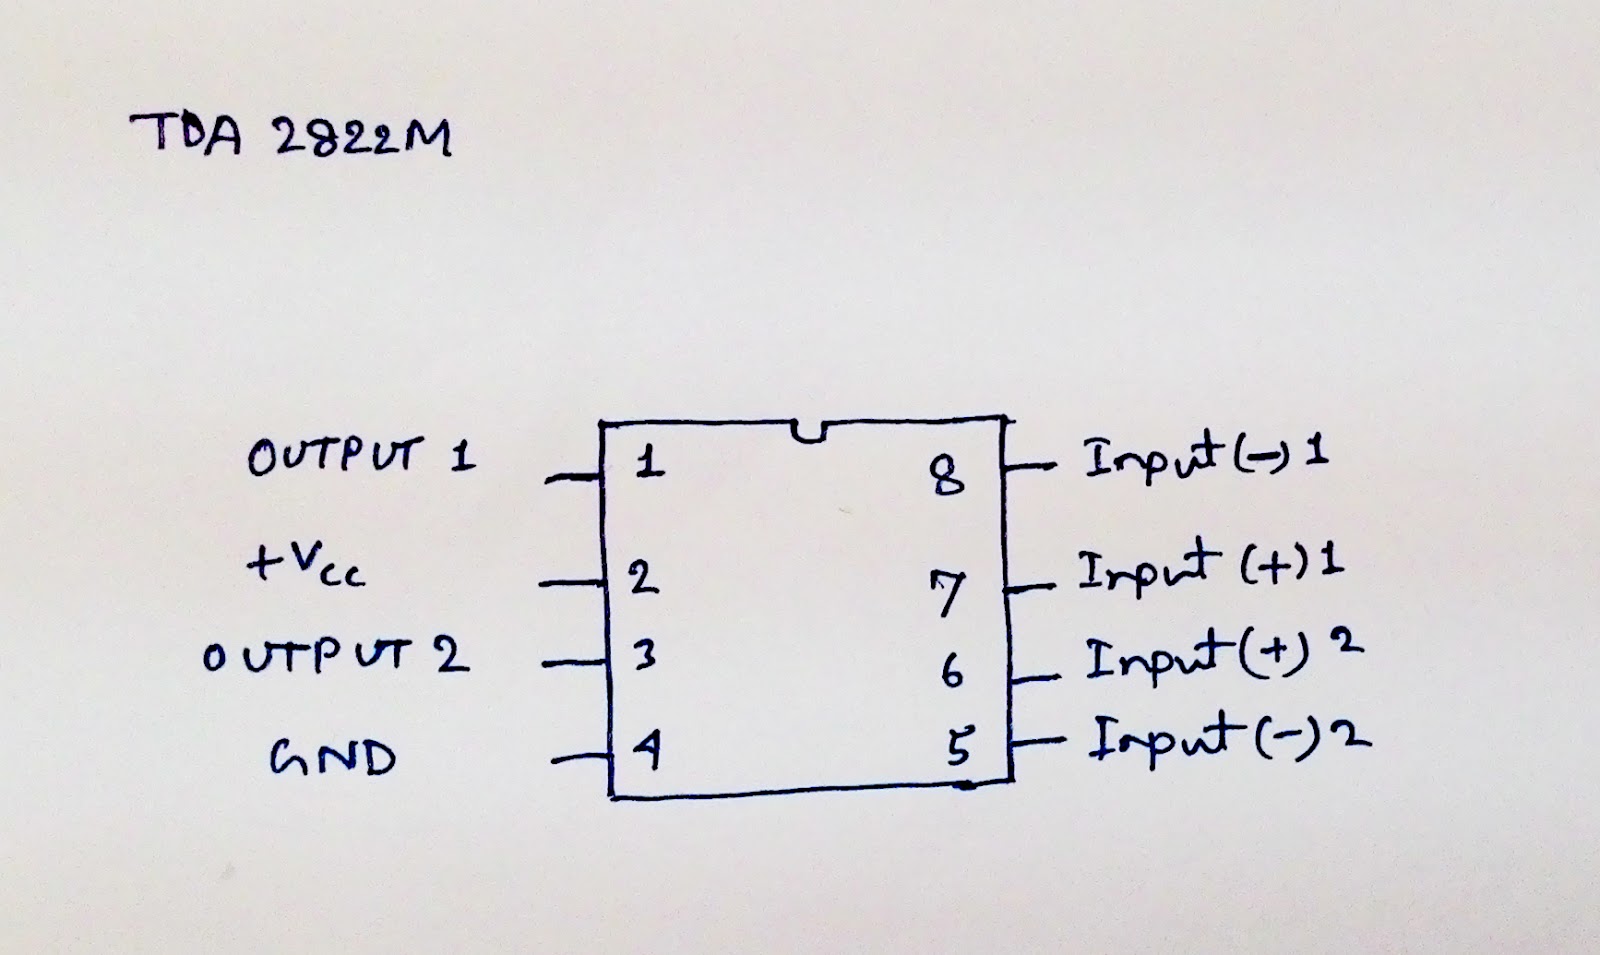 TDA 2822M
OUTPUT 1 1 8 Input (-) 1
+Vcc 2 7 Input (+) 1
OUTPUT 2 3 6 Input (+) 2
GND 4 5 Input (-) 2